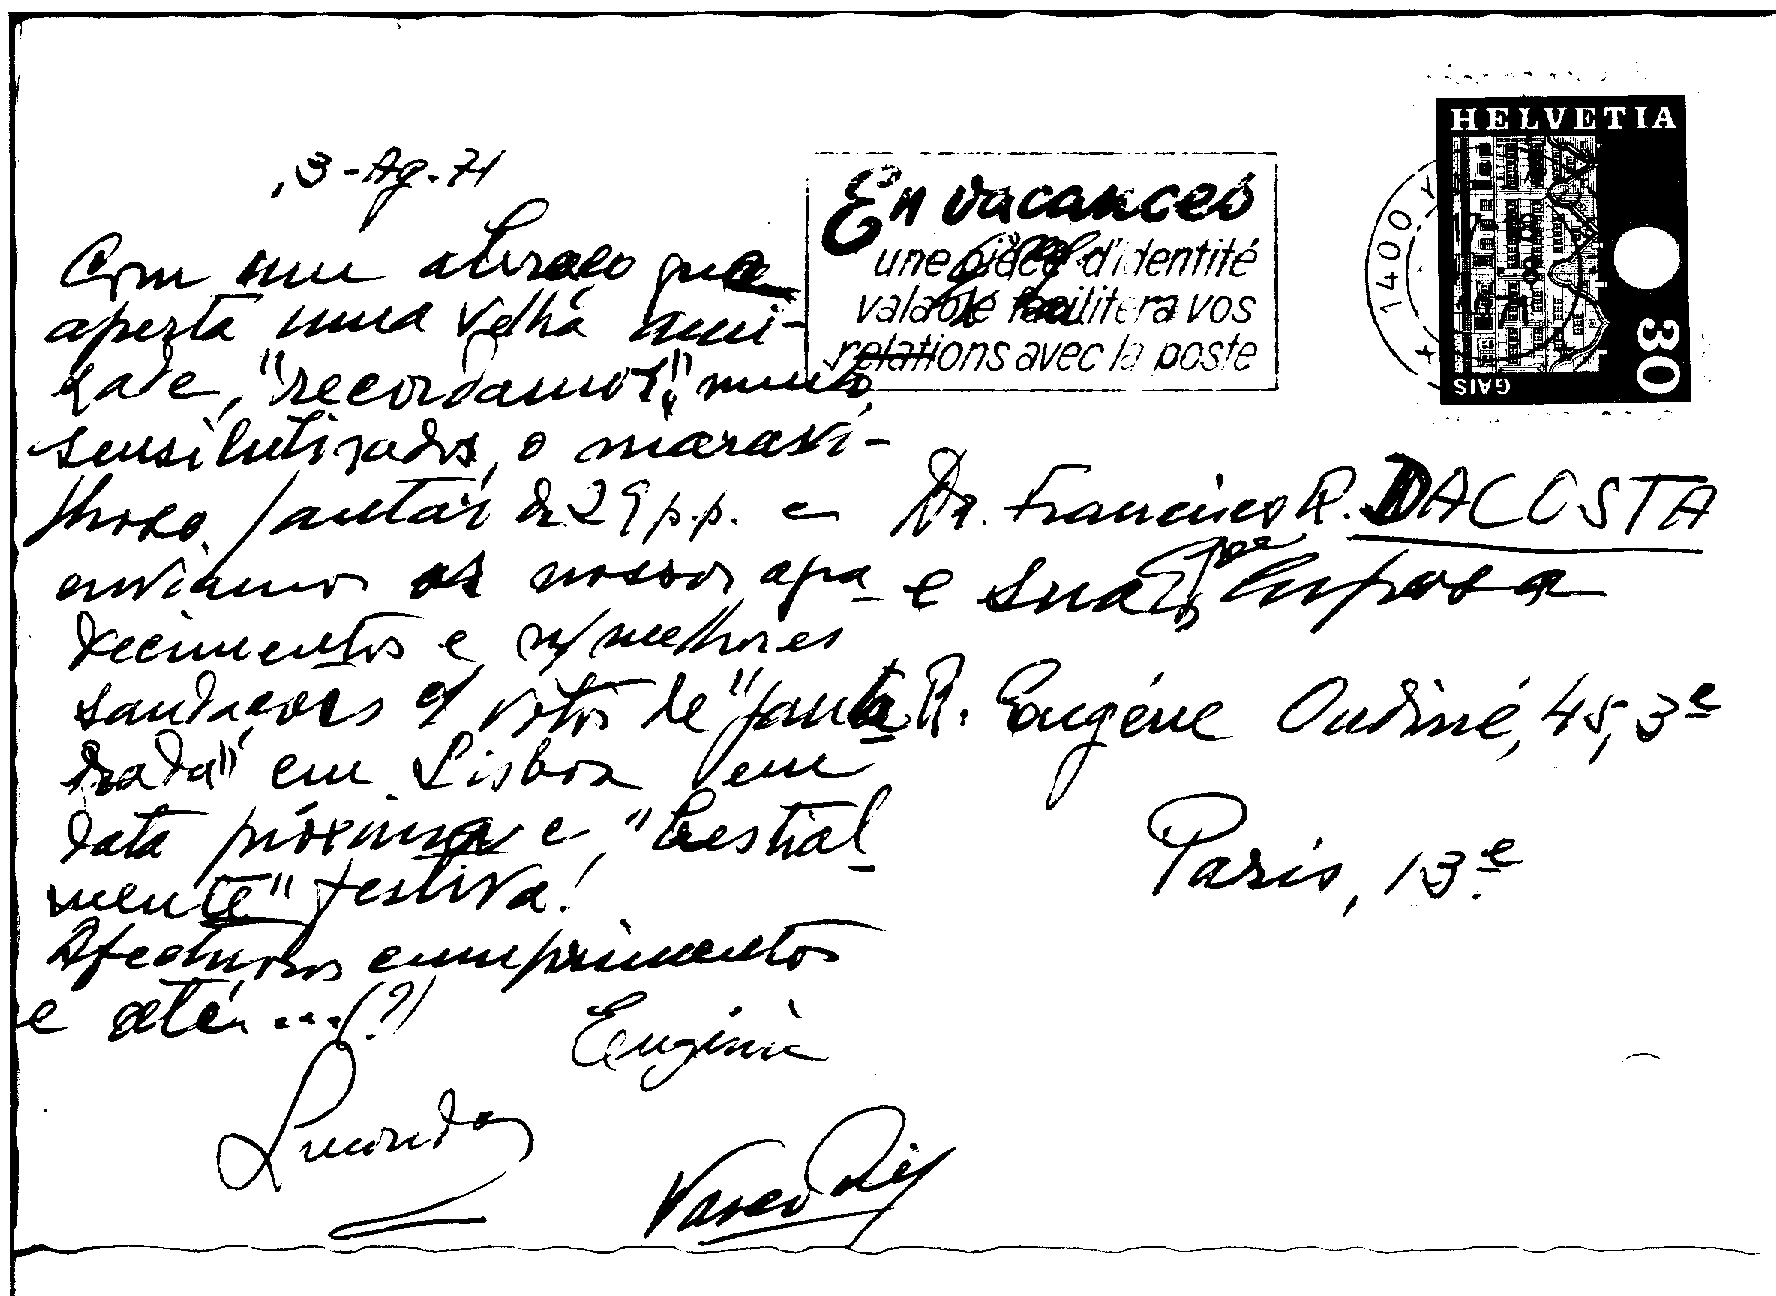 3-Ag.71
Com um abraço que
aperta uma velha ami-
zade, "recordamos", muito
sensibilizados, o maravi-
lhoso jantar de 29 p.p. e
enviamos os nossos agra-
decimentos e n/melhores
saudações c/ votos de "janta
rada" em Lisboa em
data próxima e, "bestial-
mente" festiva!
Afectuosos cumprimentos
e até... (?)
Eugénia
Vasco
En vacances
une pièce d'identité
valable facilitera vos
relations avec la poste
1400 Y
HELVETIA
30
GAIS
Dr. Francisco R. DACOSTA
e sua Esposa
R. Eugéne Oudiné, 45, 3e
Paris, 13.e